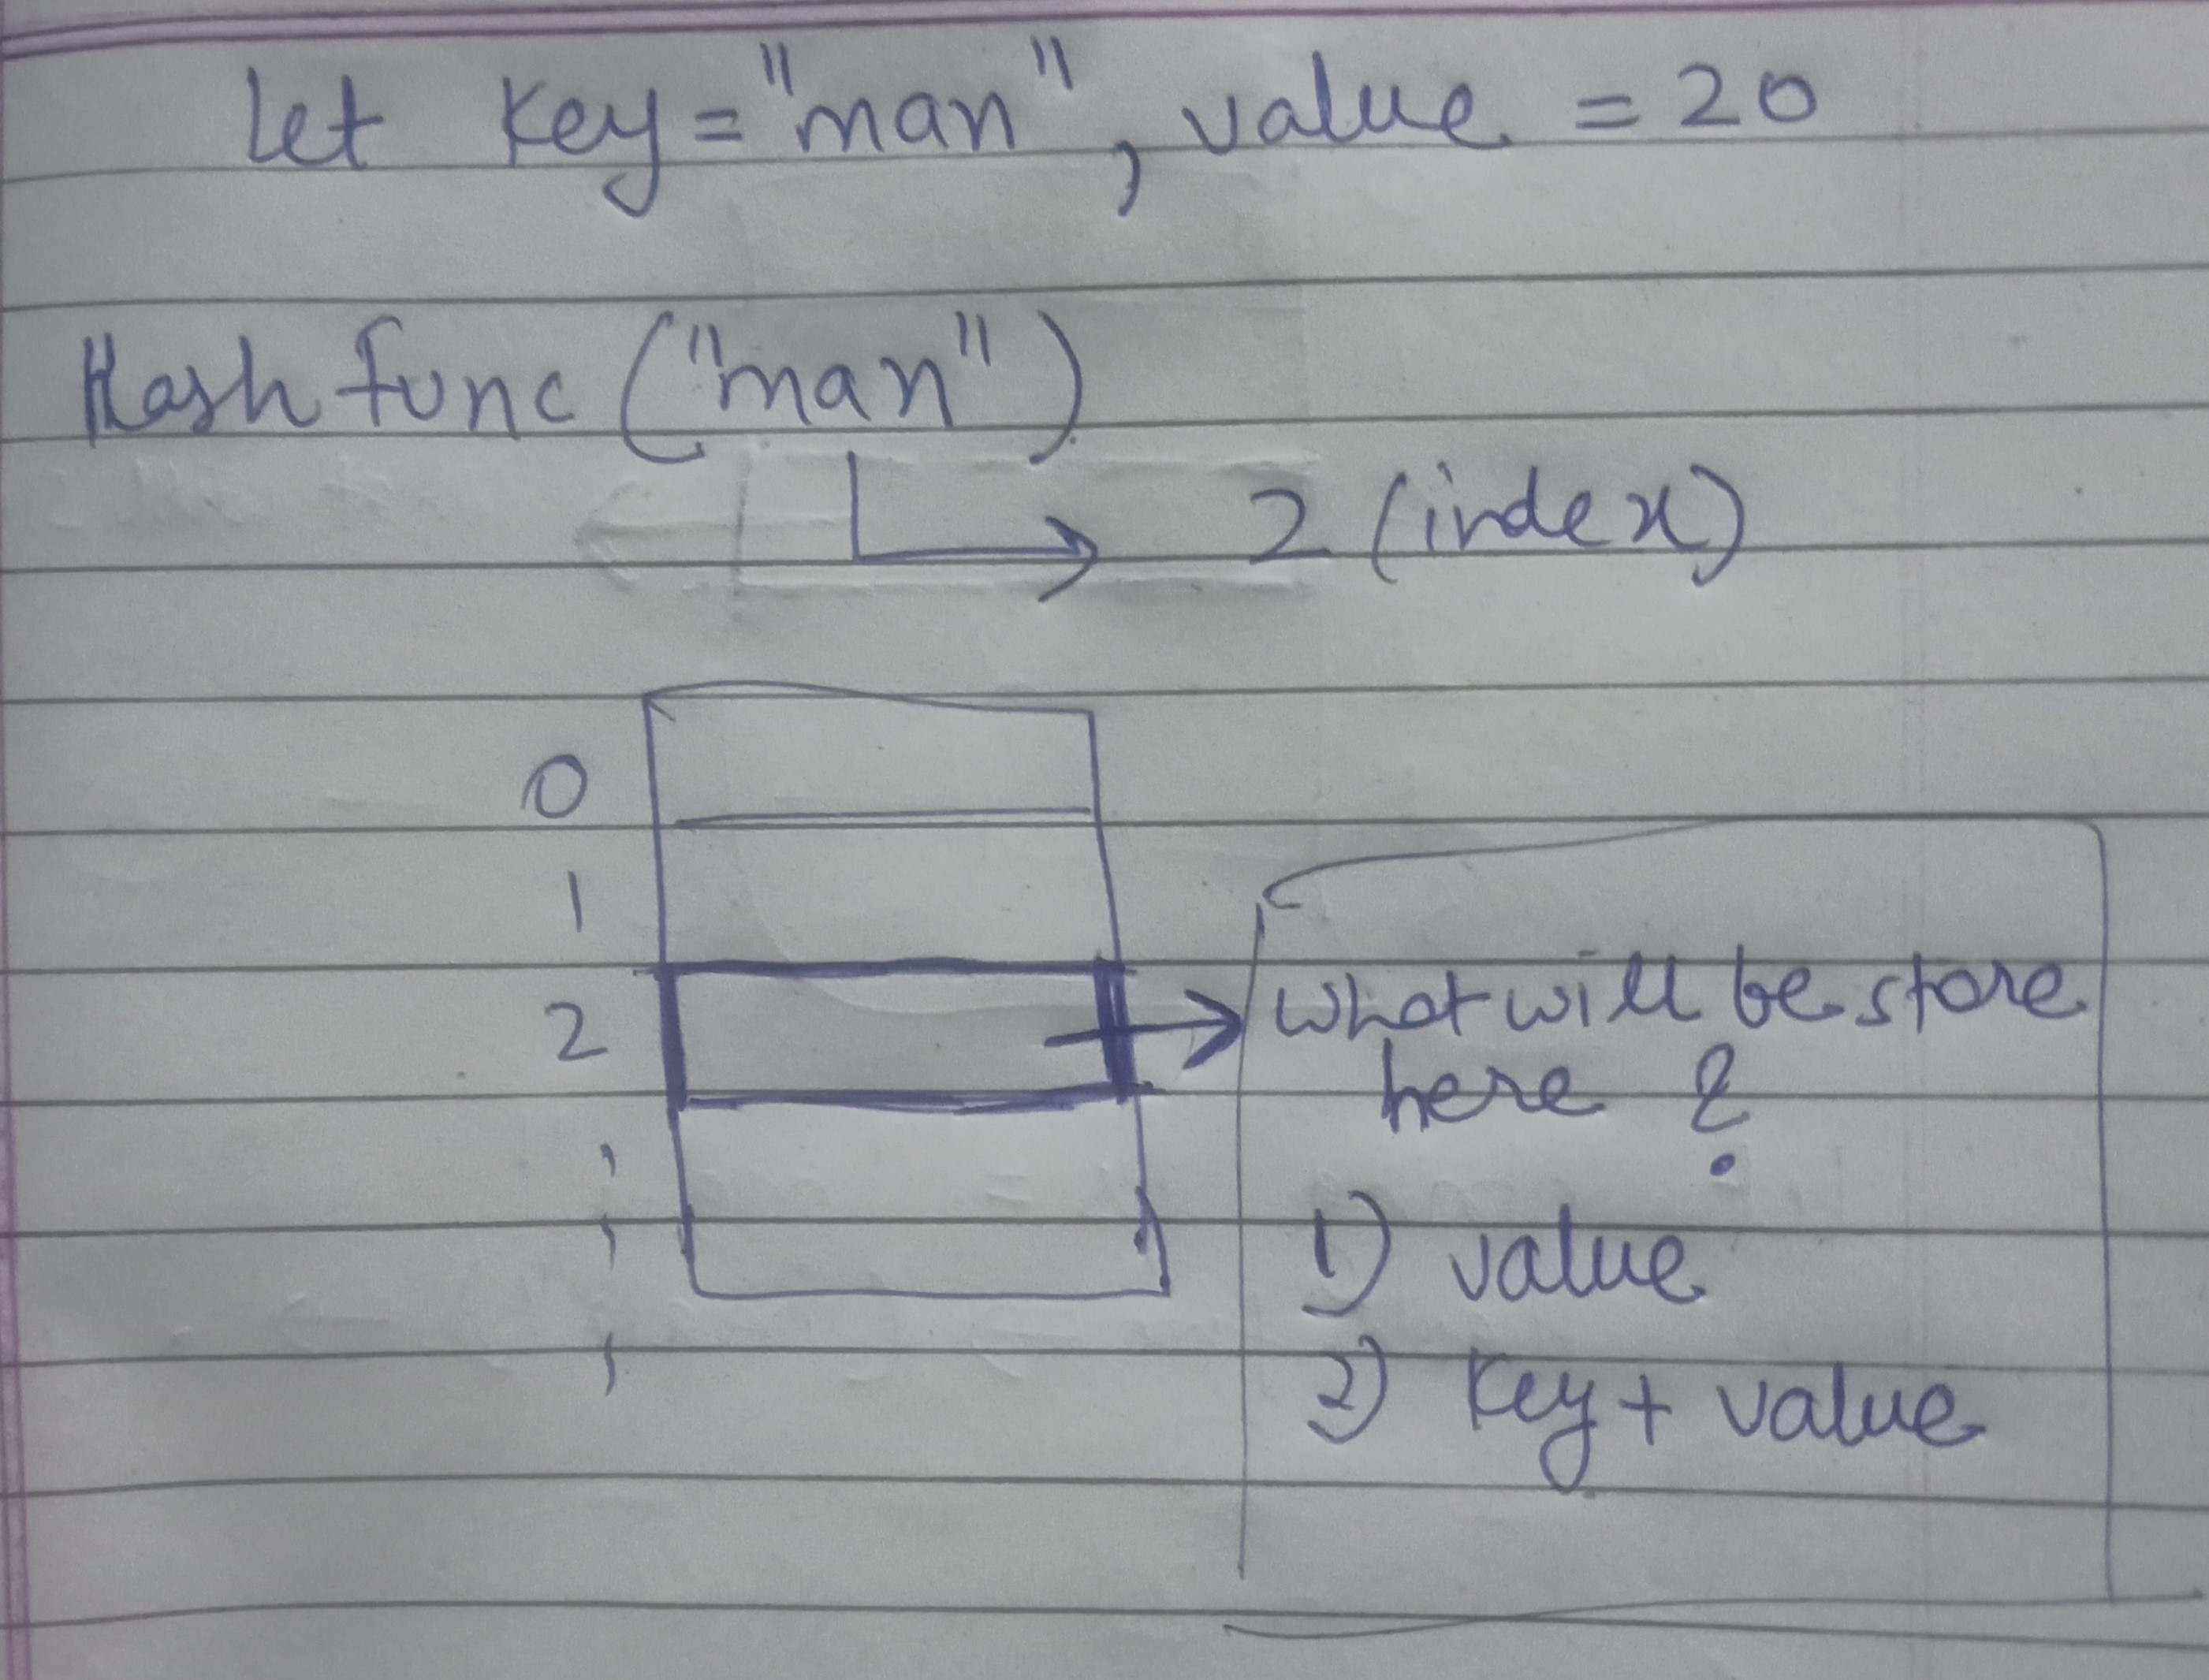 Let key = "man", value = 20
Hash func ("man")
2 (index)
0
1
2
What will be store
here ?
1) value
2) key + value